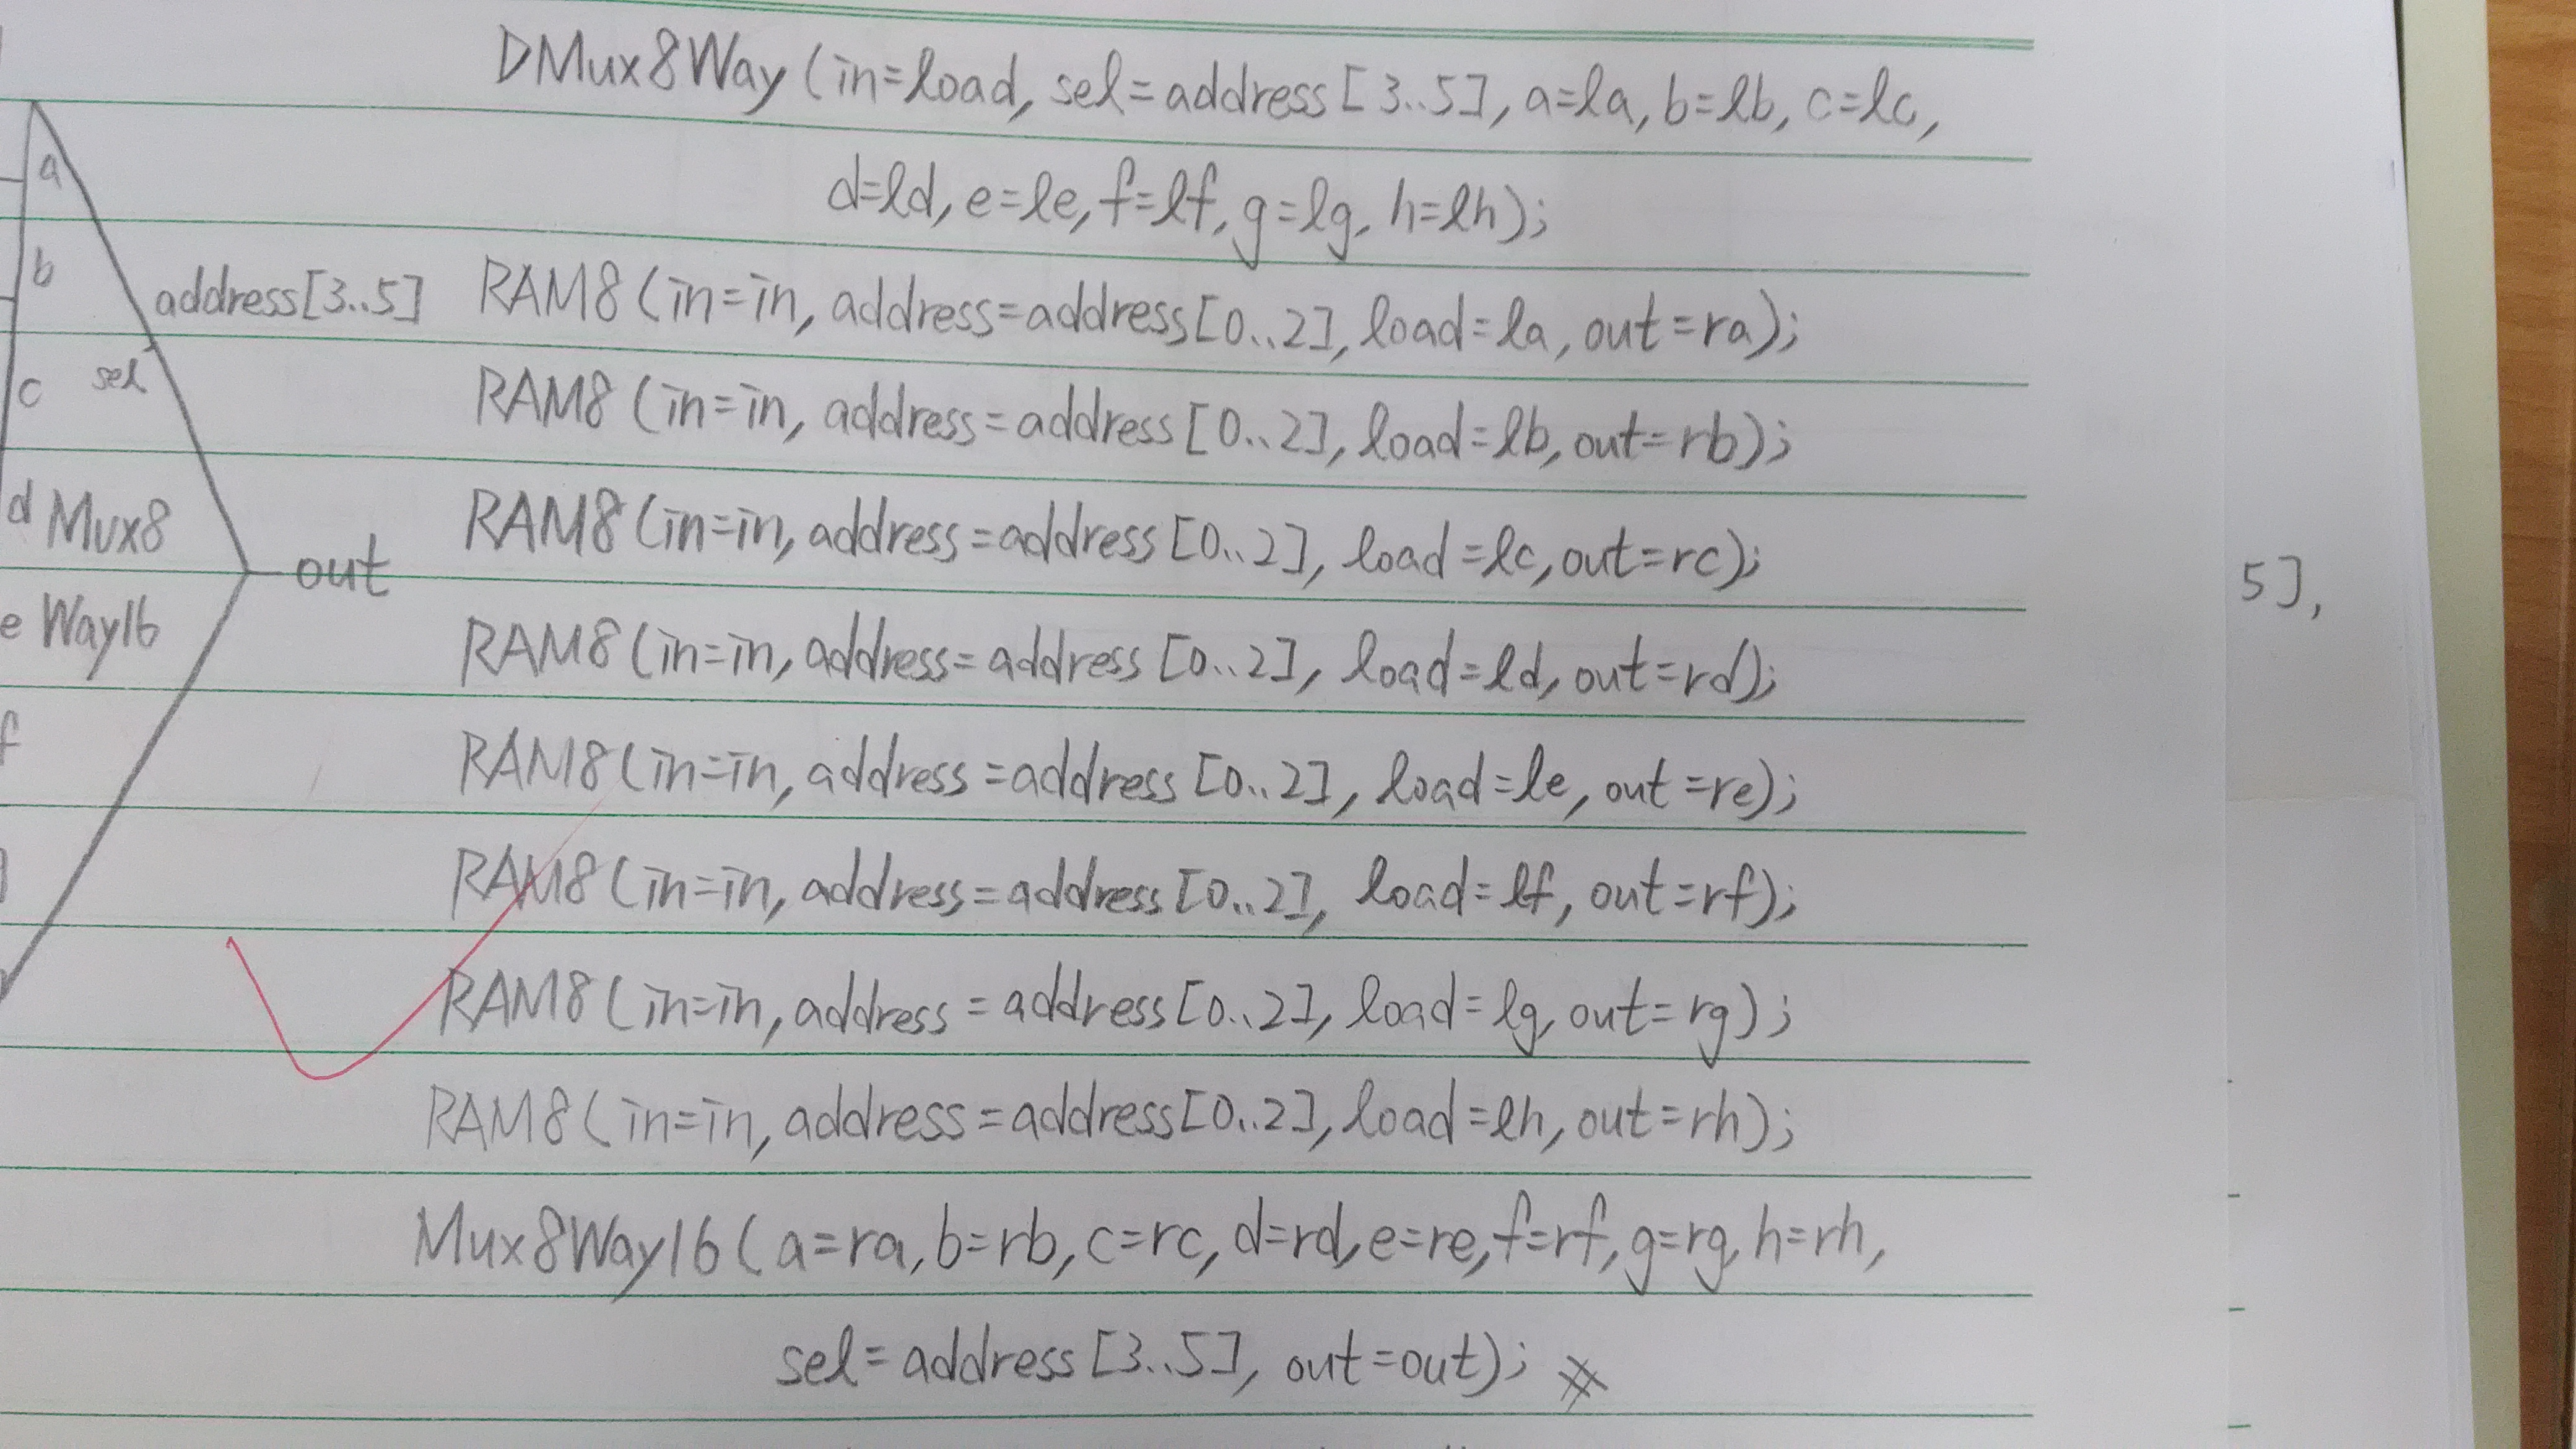 DMux8Way (in=load, sel=address[3..5], a=la, b=lb, c=lc,
d=ld, e=le, f=lf, g=lg, h=lh);
RAM8 (in=in, address=address[0..2], load=la, out=ra);
RAM8 (in=in, address=address[0..2], load=lb, out=rb);
RAM8 (in=in, address=address[0..2], load=lc, out=rc);
RAM8 (in=in, address=address[0..2], load=ld, out=rd);
RAM8 (in=in, address=address[0..2], load=le, out=re);
RAM8 (in=in, address=address[0..2], load=lf, out=rf);
RAM8 (in=in, address=address[0..2], load=lg, out=rg);
RAM8 (in=in, address=address[0..2], load=lh, out=rh);
Mux8Way16 (a=ra, b=rb, c=rc, d=rd, e=re, f=rf, g=rg, h=rh,
sel=address[3..5], out=out);
a
b
address[3..5]
sel
c
d Mux8
out
e Way16
f
5],